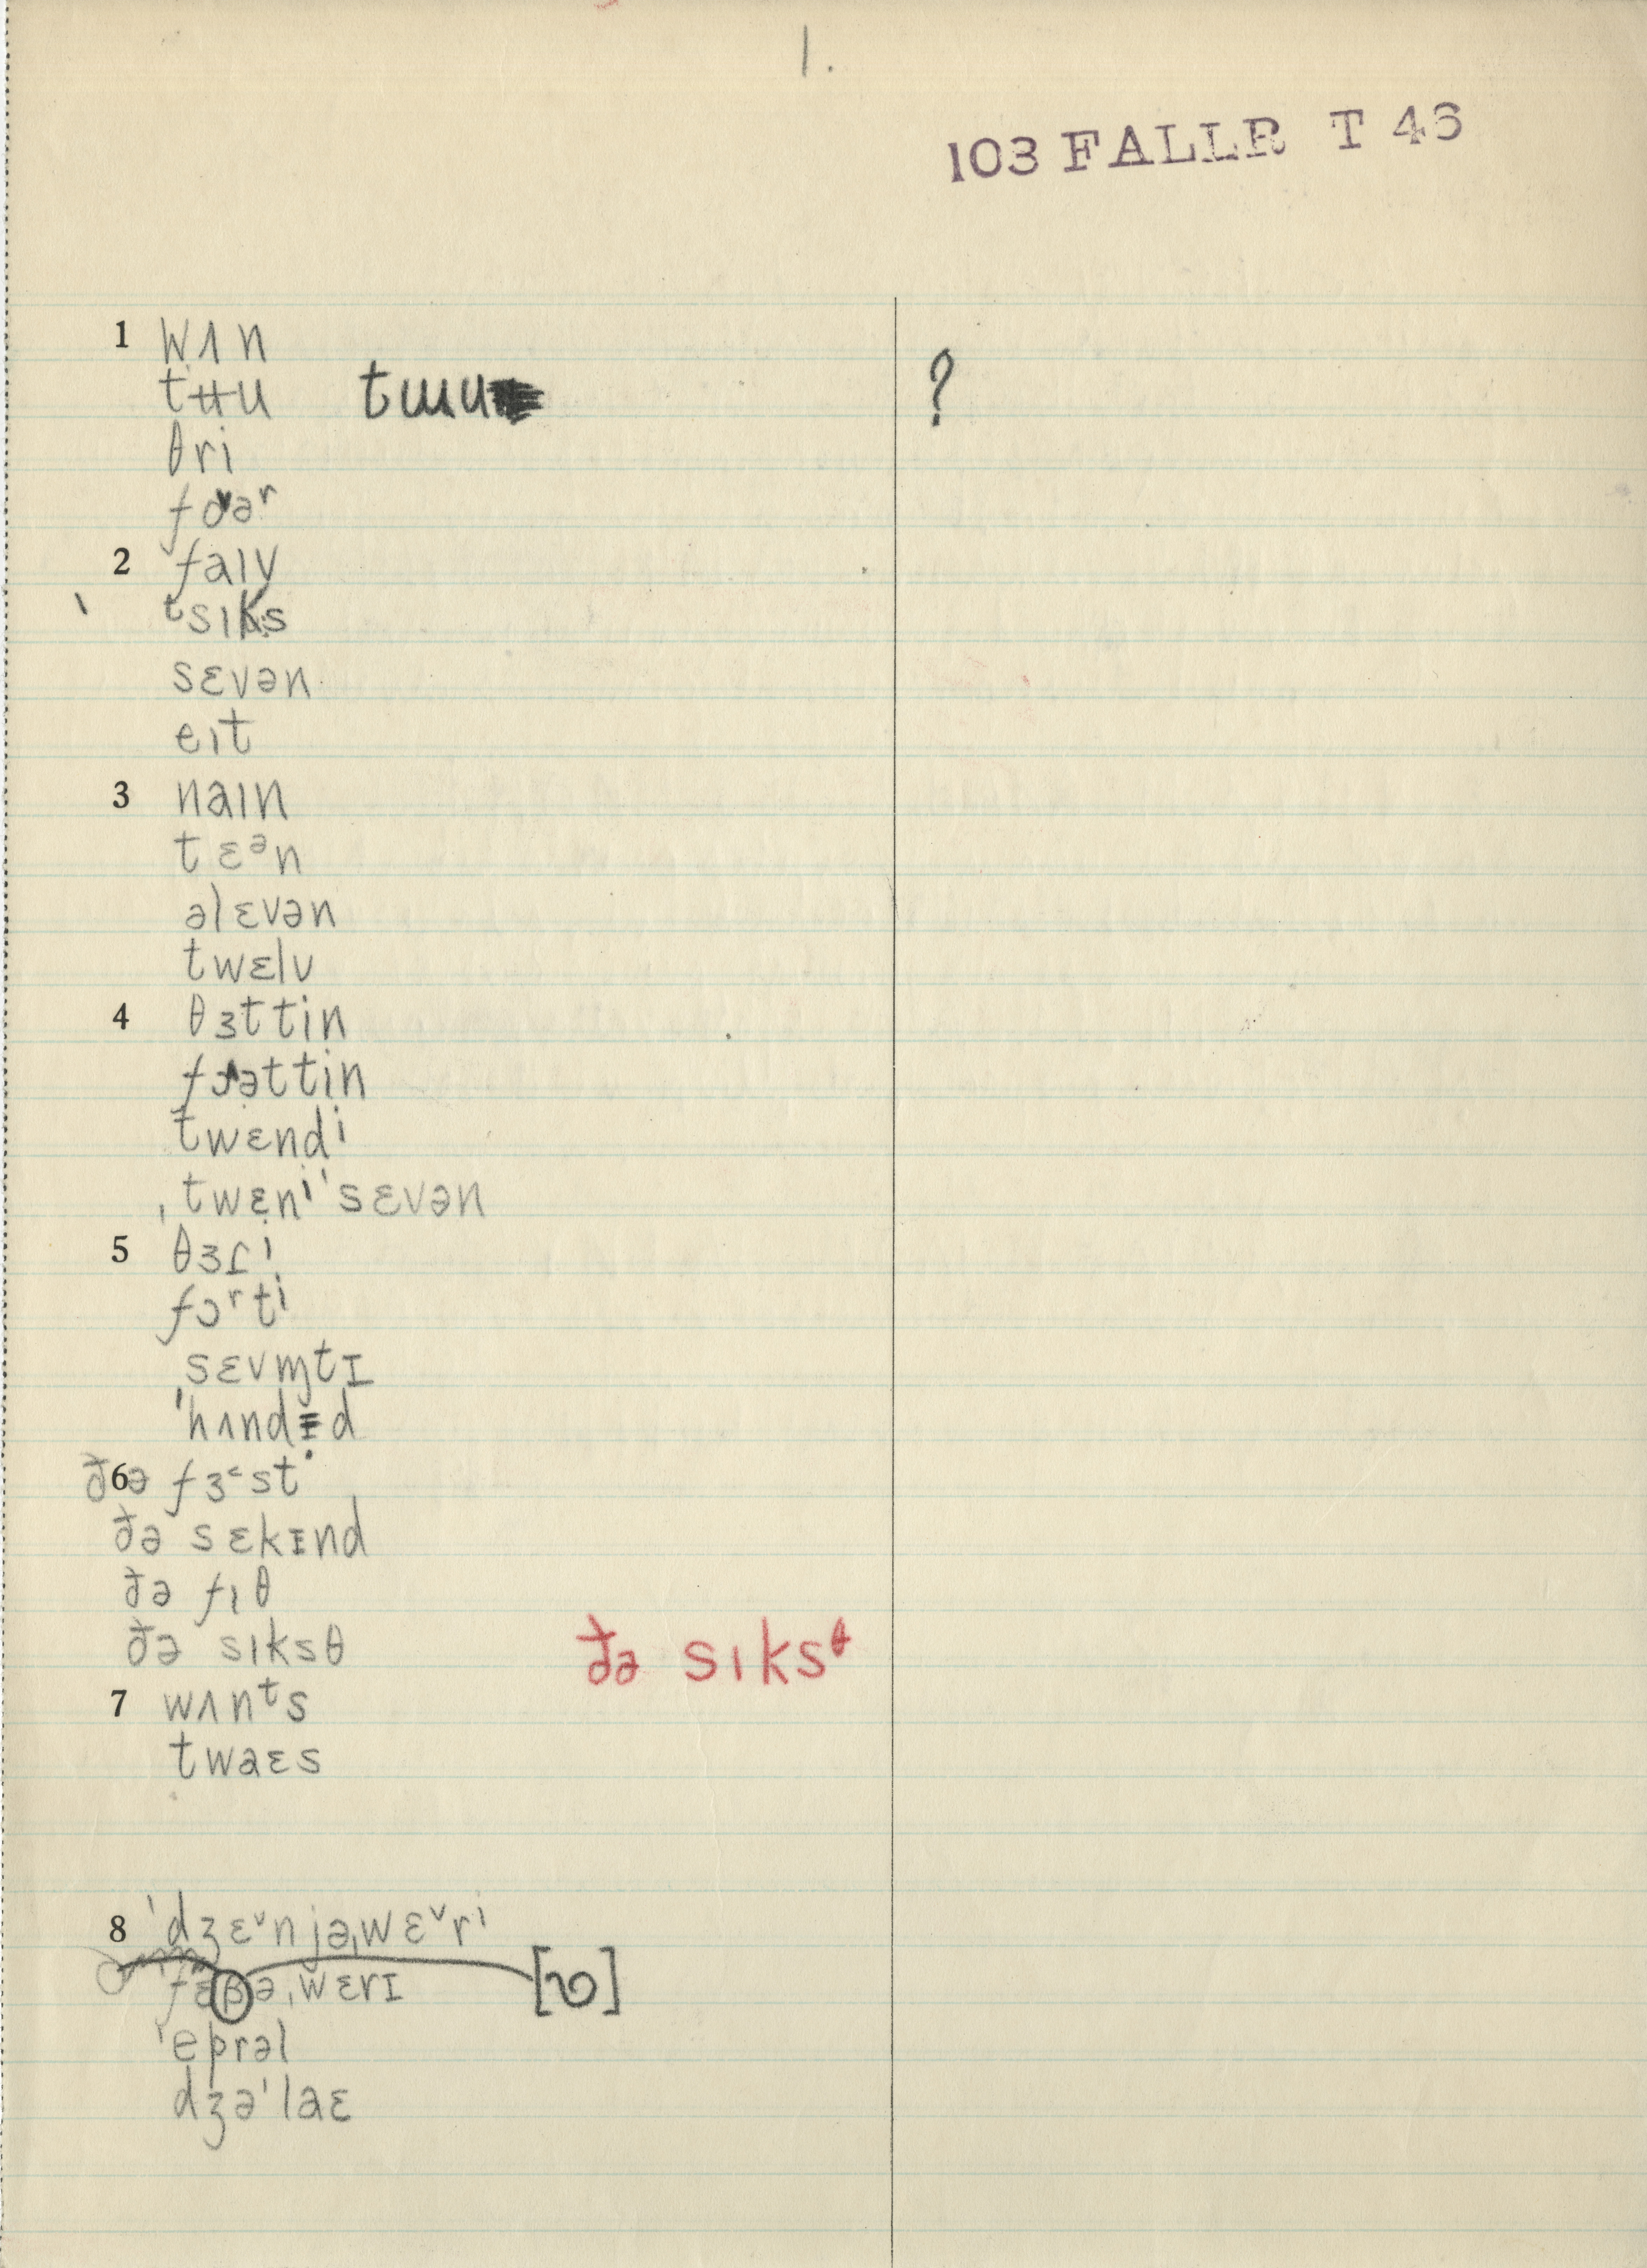 1.
103 FALLR T 43
1 wʌn
tʉu tɯu ?
θri
foᵛəʳ
2 faɪv
ᵗsɪks
sɛvən
eɪt
3 naɪn
tɛᵊn
əlɛvən
twɛlv
4 θɜttin
fɔʌəttin
twɛndⁱ
ˌtwɛnⁱˈsɛvən
5 θɜɾⁱ
fɔʳtⁱ
sɛvɱtɪ
ˈhʌndɪd
6 ðə fɜ˂st
ðə sɛkɪnd
ðə fɪθ
ðə sɪksθ ðə sɪksᶿ
7 wʌnᵗs
twaɛs
8 ˈdʒɛᵛnjəˌwɛᵛrⁱ
fɛβəˌwɛrɪ [ʋ]
ˈeprəl
dʒəˈlaɛ